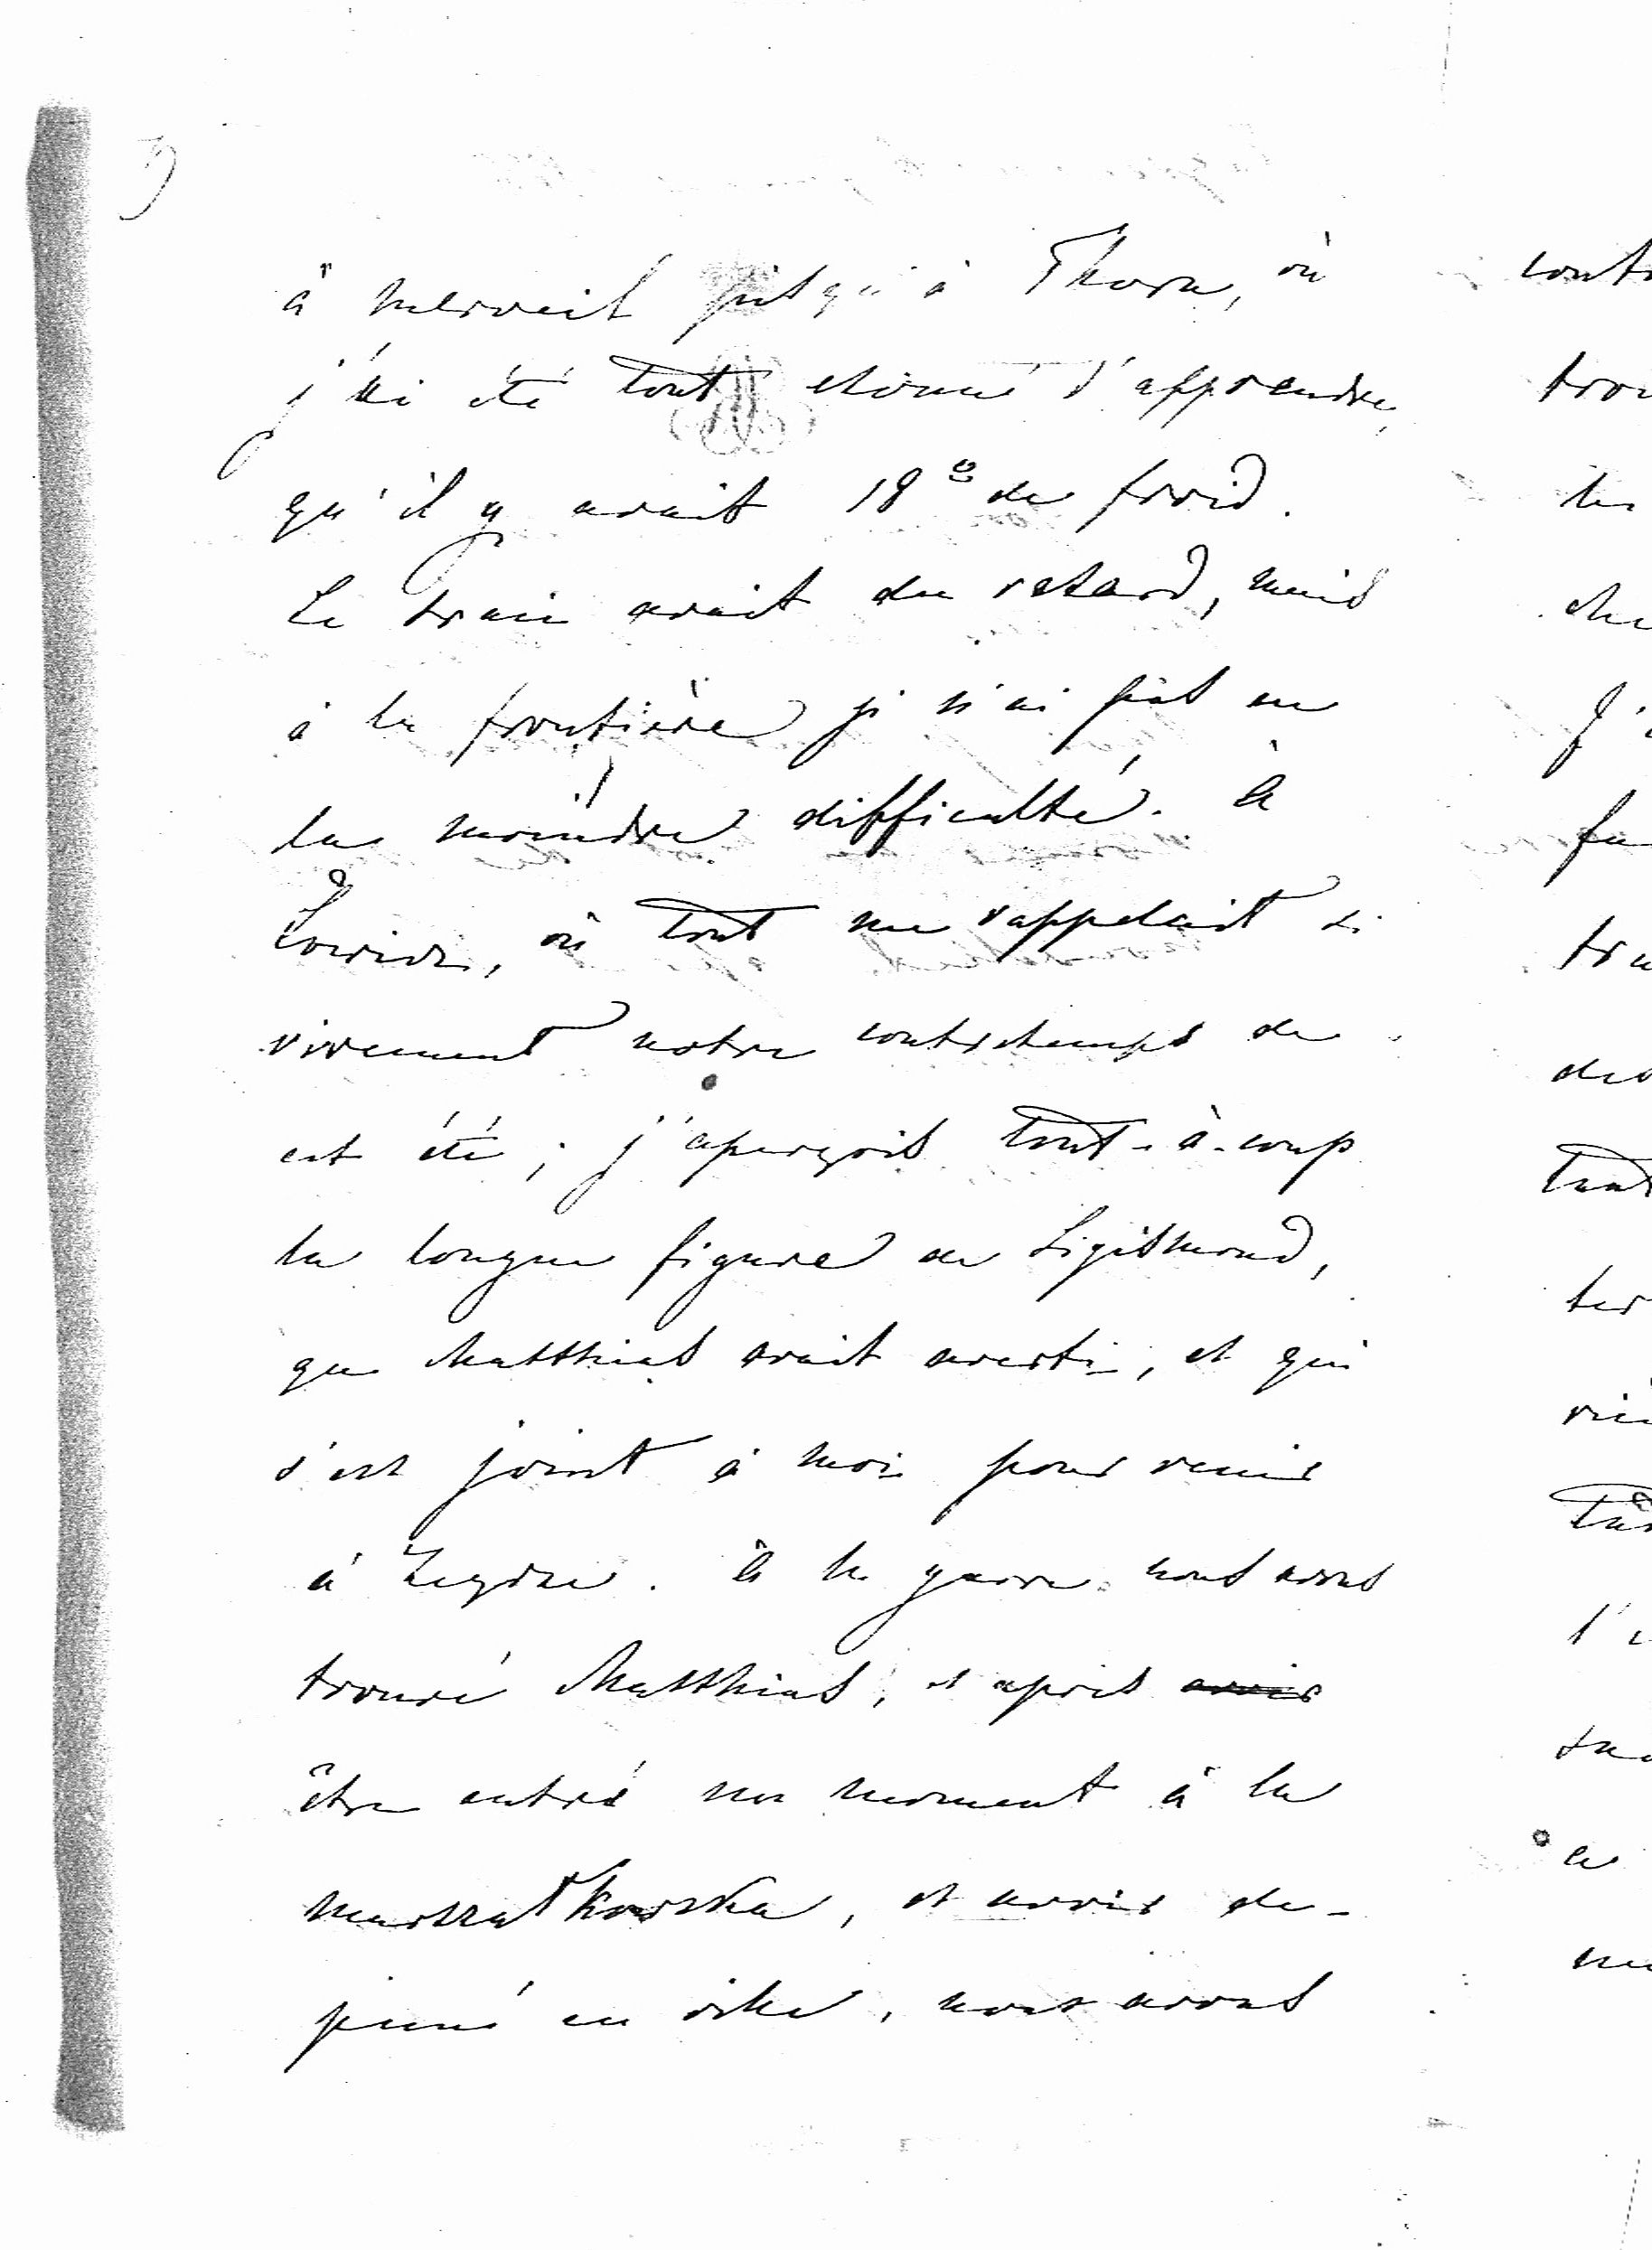 à merveil jusqu'à Thorn, où
j'ai été tout étonné d'apprendre,
qu'il y avait 18° de froid.
Le train avait du retard, mais
à la frontière je n'ai pas eu
la moindre difficulté. à
Lowicz, où tout me rappelait si
vivement notre contretemps de
cet été; j'aperçois tout-à-coup
la longue figure de Sigismond,
que Matthias avait averti, et qui
s'est joint à moi pour venir
à Zegrze. à la garre nous avons
trouvé Matthias, et après avoir
être entré un moment à la
Marszałkowska, et avoir de-
jeuné en ville, nous avons
cont
trou
les
che
J'
fa
tra
des
tant
ter
l'
ce